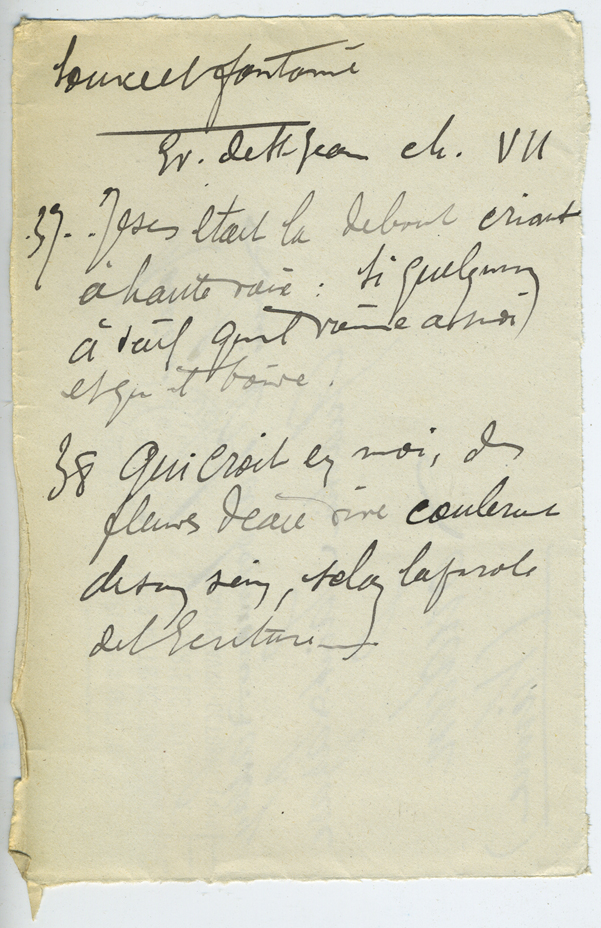 Source et fontaine
Ev. de St Jean ch. VII
37. Jesus était là debout criant
à haute voix : si quelqu'un
à soif qu'il vienne à moi
et qu'il boive.
38 Qui croit en moi, des
fleuves d'eau vive couleront
de son sein, selon la parole
de l'Ecriture